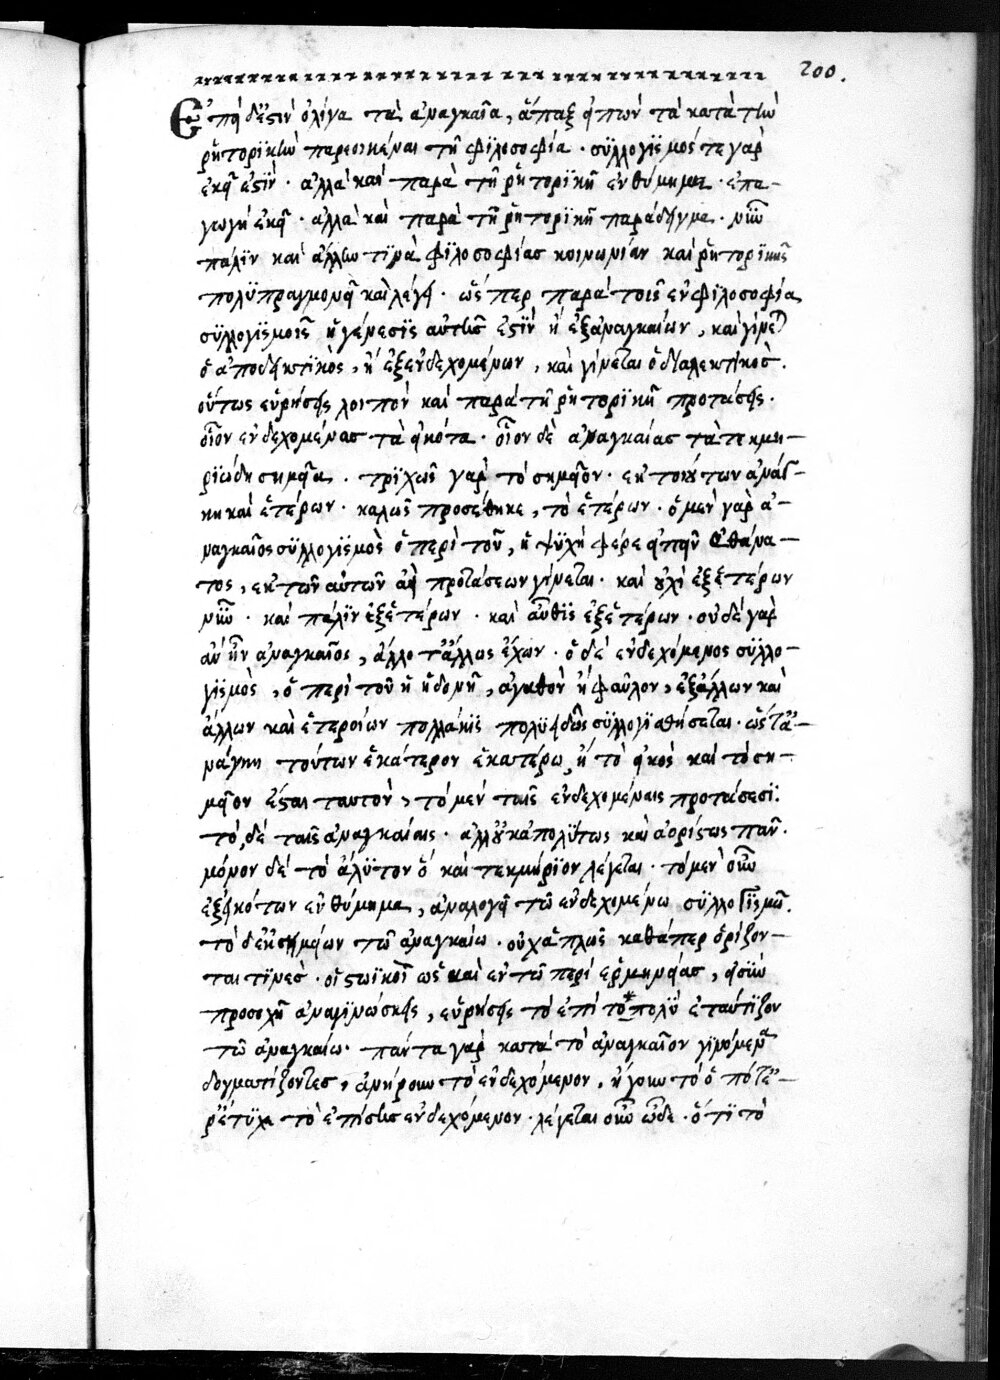 200.
Ἐπεὶ δέ ἐστιν ὀλίγα τὰ ἀναγκαῖα, ἅπαξ εἰπὼν τὰ κατὰ τὴν
ῥητορικὴν παρεοικέναι τῇ φιλοσοφία · συλλογισμός τε γὰρ
ἐκεῖ ἐστὶν · ἀλλὰ καὶ παρὰ τῇ ῥητορικῇ ἐνθύμημα · ἐπα-
γωγὴ ἐκεῖ · ἀλλὰ καὶ παρὰ τῇ ῥητορικῇ παράδειγμα · νῦν
πάλιν καὶ ἄλλην τινὰ φιλοσοφίας κοινωνίαν καὶ ῥητορικῆς
πολυπραγμονεῖ καὶ λέγει · ὥσπερ παρὰ τοῖς ἐν φιλοσοφία
συλλογισμοῖς ἡ γένεσις αὐτοῖς ἐστὶν ἢ ἐξ ἀναγκαίων, καὶ γίνεται
ὁ ἀποδεικτικὸς, ἢ ἐξ ἐνδεχομένων, καὶ γίνεται ὁ διαλεκτικὸς.
οὕτως εὑρήσεις λοιπὸν καὶ παρὰ τῇ ῥητορικῇ προτάσεις.
οἷον ἐνδεχομένας τὰ εἰκότα · οἷον δὲ ἀναγκαίας τὰ τεκμη-
ριώδη σημεῖα . τριχῶς γὰρ τὸ σημεῖον · ἐκ τούτων ἀνάγ-
κη καὶ ἑτέρων · καλῶς προσέθηκε, τὸ ἑτέρων · ὁ μὲν γὰρ ἀ-
ναγκαῖος συλλογισμὸς ὁ περὶ τοῦ, ἡ ψυχὴ φέρε εἰπεῖν ἀθάνα-
τος, ἐκ τῶν αὐτῶν ἀεὶ προτάσεων γίνεται · καὶ οὐχὶ ἐξ ἑτέρων
νῦν · καὶ πάλιν ἐξ ἑτέρων · καὶ αὖθις ἐξ ἑτέρων · οὐδὲ γὰρ
ἂν ἦν ἀναγκαῖος, ἄλλοτ' ἄλλως ἔχων · ὁ δὲ ἐνδεχόμενος συλλο-
γισμὸς, ὁ περὶ τοῦ ἡ ἡδονὴ, ἀγαθὸν ἢ φαῦλον, ἐξ ἄλλων καὶ
ἄλλων καὶ ἑτεροίων πολλάκις πολυειδῶς συλλογισθήσεται · ὥστ' ἀ-
νάγκη τούτων ἑκάτερον ἑκατέρω, ἢ τὸ εἰκὸς καὶ τὸ ση-
μεῖον ἔσται ταυτὸν, τὸ μὲν ταῖς ἐνδεχομέναις προτάσεσι.
τὸ δὲ ταῖς ἀναγκαίαις · ἀλλ' οὐκ ἀπολύτως καὶ ἀορίστως πᾶν.
μόνον δὲ τὸ ἄλυτον ὃ καὶ τεκμήριον λέγεται · τὸ μὲν οὖν
ἐξ εἰκότων ἐνθύμημα, ἀναλογεῖ τῶ ἐνδεχομένω συλλογισμῶ.
τὸ δ' ἐκ σημείων τῶ ἀναγκαίω · οὐχ ἁπλῶς καθάπερ ὁρίζον-
ται τινὲς · οἱ στωϊκοὶ ὡς καὶ ἐν τῶ περὶ ἑρμηνείας, εἰ σὺν
προσοχῇ ἀναγινώσκεις, εὑρήσεις τὸ ἐπὶ τὸ πολὺ ἐταύτιζον
τῶ ἀναγκαίω · πάντα γὰρ κατὰ τὸ ἀναγκαῖον γινόμενα
δογματίζοντες, ἀνήρουν τὸ ἐνδεχόμενον, ἤγουν τὸ ὁπότε-
ρ' ἔτυχε τὸ ἐπίσης ἐνδεχόμενον · λέγεται οὖν ὧδε · ὅτι τὸ